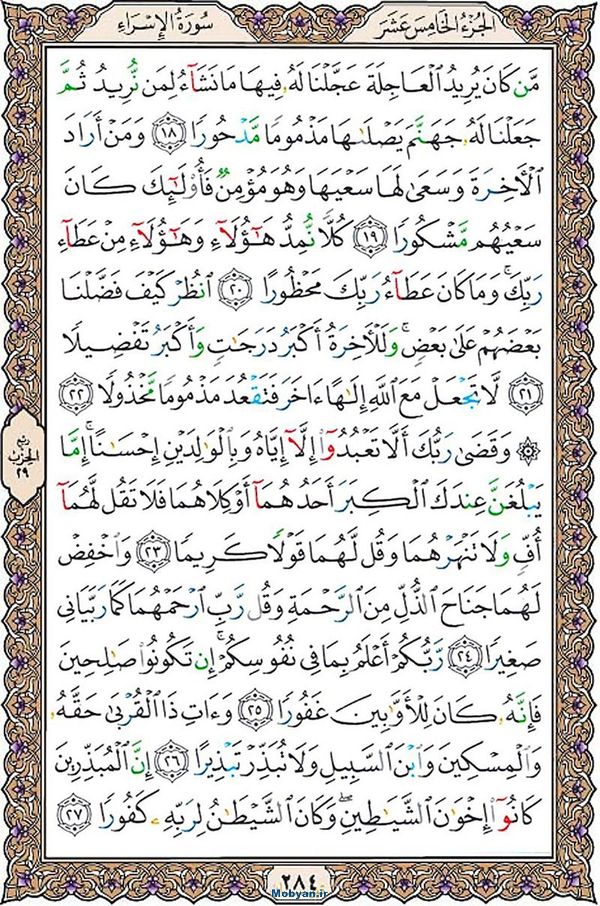 سُورَةُ الإِسۡرَاءِ
الجُزۡءُ الخَامِسَ عَشَرَ
مَّن كَانَ يُرِيدُ ٱلۡعَاجِلَةَ عَجَّلۡنَا لَهُۥ فِيهَا مَا نَشَآءُ لِمَن نُّرِيدُ ثُمَّ
جَعَلۡنَا لَهُۥ جَهَنَّمَ يَصۡلَىٰهَا مَذۡمُومٗا مَّدۡحُورٗا ١٨ وَمَنۡ أَرَادَ
ٱلۡأٓخِرَةَ وَسَعَىٰ لَهَا سَعۡيَهَا وَهُوَ مُؤۡمِنٞ فَأُوْلَٰٓئِكَ كَانَ
سَعۡيُهُم مَّشۡكُورٗا ١٩ كُلّٗا نُّمِدُّ هَٰٓؤُلَآءِ وَهَٰٓؤُلَآءِ مِنۡ عَطَآءِ
رَبِّكَۚ وَمَا كَانَ عَطَآءُ رَبِّكَ مَحۡظُورًا ٢٠ ٱنظُرۡ كَيۡفَ فَضَّلۡنَا
بَعۡضَهُمۡ عَلَىٰ بَعۡضٖۚ وَلَلۡأٓخِرَةُ أَكۡبَرُ دَرَجَٰتٖ وَأَكۡبَرُ تَفۡضِيلٗا
٢١ لَّا تَجۡعَلۡ مَعَ ٱللَّهِ إِلَٰهًا ءَاخَرَ فَتَقۡعُدَ مَذۡمُومٗا مَّخۡذُولٗا ٢٢
۞ وَقَضَىٰ رَبُّكَ أَلَّا تَعۡبُدُوٓاْ إِلَّآ إِيَّاهُ وَبِٱلۡوَٰلِدَيۡنِ إِحۡسَٰنًاۚ إِمَّا
يَبۡلُغَنَّ عِندَكَ ٱلۡكِبَرَ أَحَدُهُمَآ أَوۡ كِلَاهُمَا فَلَا تَقُل لَّهُمَآ
أُفّٖ وَلَا تَنۡهَرۡهُمَا وَقُل لَّهُمَا قَوۡلٗا كَرِيمٗا ٢٣ وَٱخۡفِضۡ
لَهُمَا جَنَاحَ ٱلذُّلِّ مِنَ ٱلرَّحۡمَةِ وَقُل رَّبِّ ٱرۡحَمۡهُمَا كَمَا رَبَّيَانِي
صَغِيرٗا ٢٤ رَّبُّكُمۡ أَعۡلَمُ بِمَا فِي نُفُوسِكُمۡۚ إِن تَكُونُواْ صَٰلِحِينَ
فَإِنَّهُۥ كَانَ لِلۡأَوَّٰبِينَ غَفُورٗا ٢٥ وَءَاتِ ذَا ٱلۡقُرۡبَىٰ حَقَّهُۥ
وَٱلۡمِسۡكِينَ وَٱبۡنَ ٱلسَّبِيلِ وَلَا تُبَذِّرۡ تَبۡذِيرًا ٢٦ إِنَّ ٱلۡمُبَذِّرِينَ
كَانُوٓاْ إِخۡوَٰنَ ٱلشَّيَٰطِينِۖ وَكَانَ ٱلشَّيۡطَٰنُ لِرَبِّهِۦ كَفُورٗا ٢٧
ربع
الحزب
٢٩
٢٨٤
Mobyan.ir